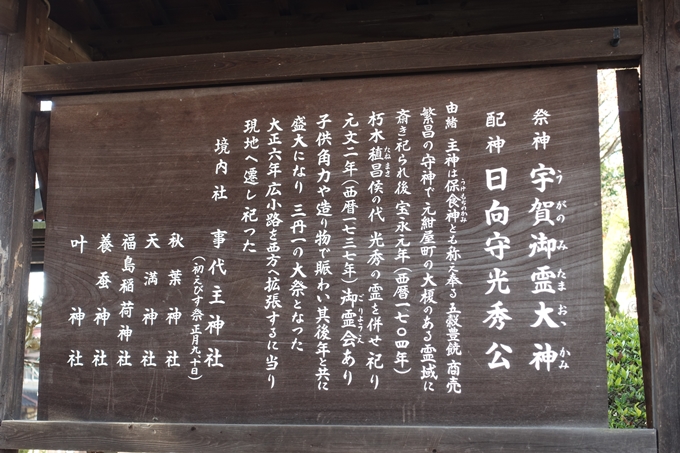 祭神 宇賀御霊大神
うがのみたまおゝかみ
配神 日向守光秀公
由緒 主神は保食神とも称え奉る 五穀豊饒 商売
うけもちのかみ
繁昌の守神で元紺屋町の大榎のある霊域に
斎き祀られ後 宝永元年(西暦一七〇四年)
朽木稙昌侯の代 光秀の霊を併せ祀り
たねまさ
元文二年(西暦一七三七年)御霊会あり
ごりようえ
子供角力や造り物で賑わい其後年と共に
盛大になり 三丹一の大祭となった
大正六年広小路を西方へ拡張するに当り
現地へ遷し祀った
境内社 事代主神社
(初えびす祭正月九、十日)
秋葉神社
天満神社
福島稲荷神社
養蚕神社
叶神社